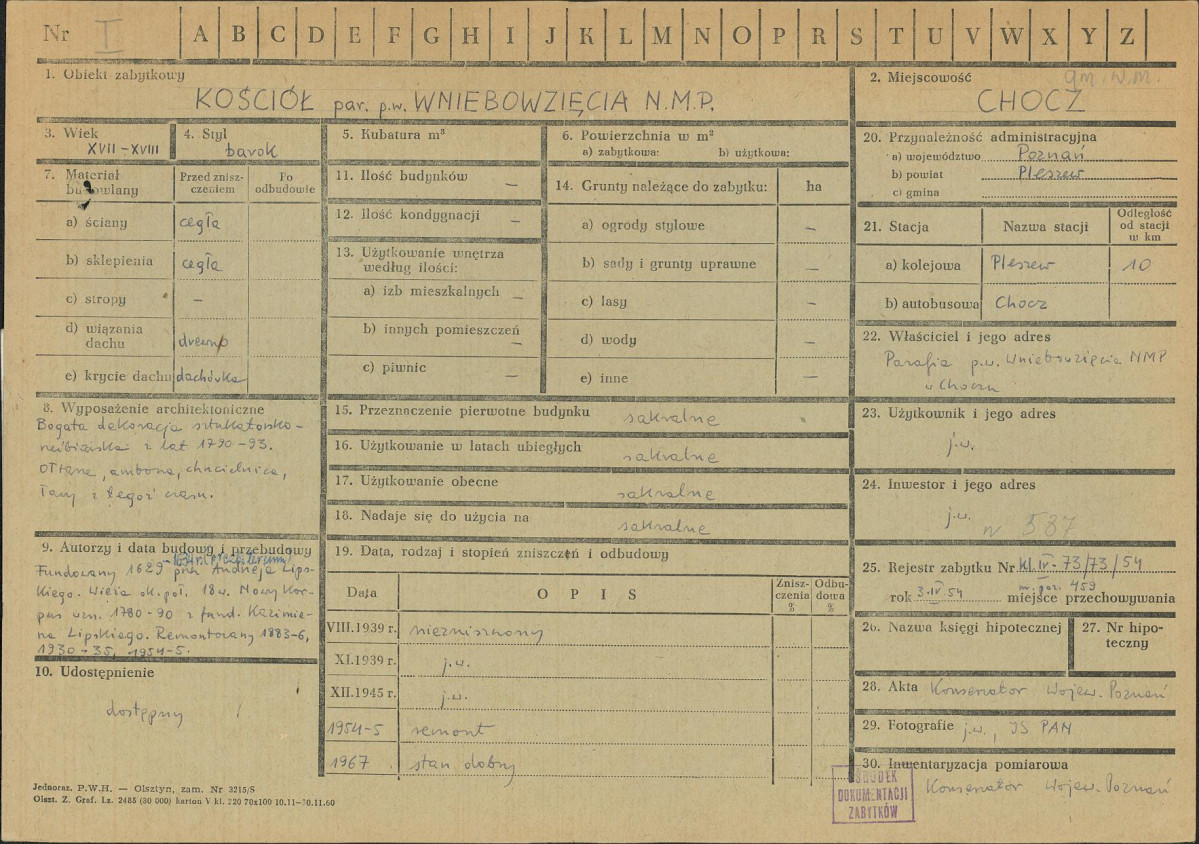 Nr I A B C D E F G H I J K L M N O P R S T U V W X Y Z
1. Obiekt zabytkowy
KOŚCIÓŁ par. p.w. WNIEBOWZIĘCIA N.M.P.
2. Miejscowość gm. w.m.
CHOCZ
3. Wiek
XVII-XVIII
4. Styl
barok
5. Kubatura m³
6. Powierzchnia w m²
a) zabytkowa: b) użytkowa:
7. Materiał budowlany
Przed zniszczeniem
Po odbudowie
a) ściany cegła
b) sklepienia cegła
c) stropy –
d) wiązania dachu drewno
e) krycie dachu dachówka
11. Ilość budynków –
12. Ilość kondygnacji –
13. Użytkowanie wnętrza
według ilości:
a) izb mieszkalnych –
b) innych pomieszczeń –
c) piwnic –
14. Grunty należące do zabytku: ha
a) ogrody stylowe –
b) sady i grunty uprawne –
c) lasy –
d) wody –
e) inne –
20. Przynależność administracyjna
a) województwo Poznań
b) powiat Pleszew
c) gmina
21. Stacja Nazwa stacji Odległość od stacji w km
a) kolejowa Pleszew 10
b) autobusowa Chocz
22. Właściciel i jego adres
Parafia p.w. Wniebowzięcia NMP
w Choczu
23. Użytkownik i jego adres
j.w.
24. Inwestor i jego adres
j.w.
587
25. Rejestr zabytku Nr kl.IV-73/73/54
rok 3.IV 54 miejsce przechowywania
459
26. Nazwa księgi hipotecznej
27. Nr hipoteczny
28. Akta Konserwator Wojew. Poznań
29. Fotografie j.w., IS PAN
30. Inwentaryzacja pomiarowa
Konserwator Wojew. Poznań
8. Wyposażenie architektoniczne
Bogata dekoracja sztukatorsko-
rzeźbiarska z lat 1790-93.
Ołtarze, ambona, chrzcielnica,
ławy z tegoż czasu.
9. Autorzy i data budowy i przebudowy
-1634r. (prezbiterium)
Fundowany 1629 przez Andrzeja Lips-
kiego. Wieża ok. poł. 18w. Nowy kor-
pus wzn. 1780-90 z fund. Kazimie-
rza Lipskiego. Remontowany 1883-6,
1930-35, 1954-5.
10. Udostępnienie
dostępny
15. Przeznaczenie pierwotne budynku sakralne
16. Użytkowanie w latach ubiegłych sakralne
17. Użytkowanie obecne sakralne
18. Nadaje się do użycia na sakralne
19. Data, rodzaj i stopień zniszczeń i odbudowy
Data OPIS Zniszczenia % Odbudowa %
VIII.1939 r. niezniszczony
XI.1939 r. j.w.
XII.1945 r. j.w.
1954-5 remont
1967 stan dobry
OŚRODEK
DOKUMENTACJI
ZABYTKÓW
Jednoraz. P.W.H. — Olsztyn, zam. Nr 3215/S
Olszt. Z. Graf. Lz. 2485 (30 000) karton V kl. 220 70x100 10.11-30.11.60